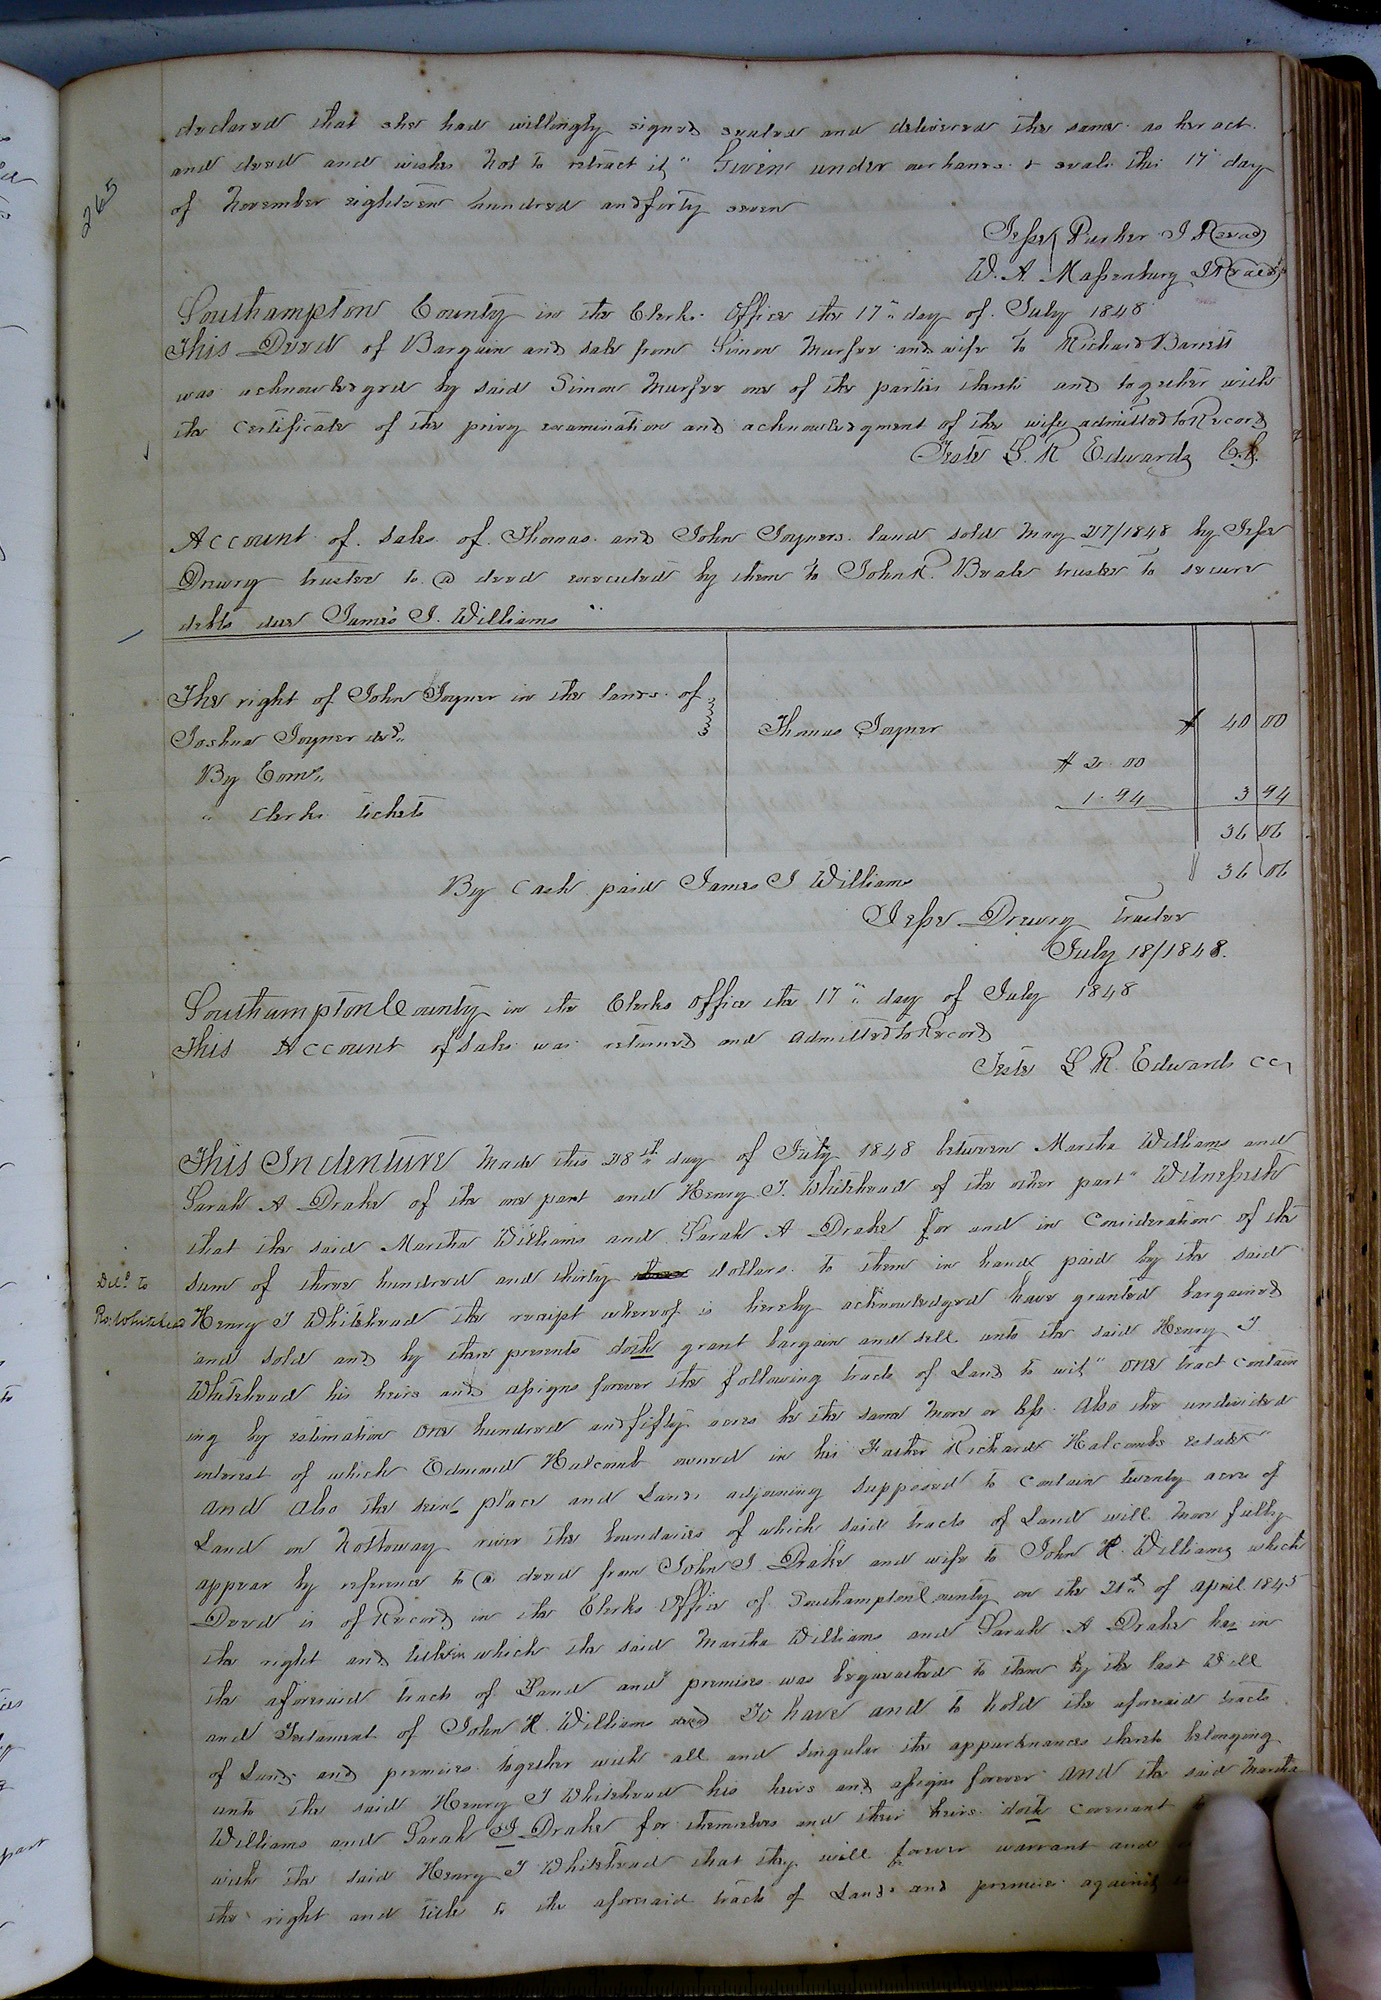 265
declared that she had willingly signed sealed and delivered the same as her act
and deed and wishes not to retract it" Given under our hands & seals this 17" day
of November eighteen hundred and forty seven
Jesse Parker J P (seal)
W. A. Massenburg J P (seal)
Southampton County in the Clerks Office the 17" day of July 1848
This Deed of Bargain and sale from Simon Murfee and wife to Richard Barrett
was acknowledged by said Simon Murfee one of the parties thereto and together with
the Certificate of the privy examination and acknowledgment of the wife admitted to Record
Teste L. R Edwards C.C.
Account of Sales of Thomas and John Joyners land sold May 27/1848 by Jesse
Drewry trustee to a deed executed by them to John R. Beale trustee to secure
debts due James J. Williams
The right of John Joyner in the lands of
Joshua Joyner decd. Thomas Joyner $ 40 00
By Coms. $ 2.00
" Clerks tickets 1.94 3 94
36 06
By Cash paid James J Williams 36 06
Jesse Drewry Trustee
July 18/1848.
Southampton County in the Clerks Office the 17" day of July 1848
This Account of Sales was returned and admitted to Record
Teste L R. Edwards CC
This Indenture Made this 28th day of July 1848 between Martha Williams and
Sarah A Drake of the one part and Henry J. Whitehead of the other part" Witnesseth
that the said Martha Williams and Sarah A Drake for and in Consideration of the
sum of three hundred and thirty dollars to them in hand paid by the said
Deld to
Henry J Whitehead the receipt whereof is hereby acknowledged have granted bargained
and sold and by these presents doth grant bargain and sell unto the said Henry J
Whitehead his heirs and assigns forever the following tracts of Land to wit" one tract contain
ing by estimation one hundred and fifty acres be the same more or less. Also the undivided
interest of which Edmond Halcomb owned in his Father Richard Halcombs estate"
and also the sein place and Lands adjoining supposed to contain twenty acres of
Land on Nottoway river the boundaries of which said tracts of Land will more fully
appear by reference to a deed from John J Drake and wife to John R. Williams which
Deed is of Record in the Clerks Office of Southampton County on the 21st of april 1845
the right and title in which the said Martha Williams and Sarah A Drake has in
the aforesaid tracts of Land and premises was bequeathed to them by the last Will
and Testament of John R. Williams decd To have and to hold the aforesaid tracts
of Lands and premises together with all and singular the appurtenances thereto belonging
unto the said Henry J Whitehead his heirs and assigns forever and the said Martha
Williams and Sarah J Drake for themselves and their heirs doth covenant
with the said Henry J Whitehead that they will forever warrant and
the right and title to the aforesaid tracts of Lands and premises against